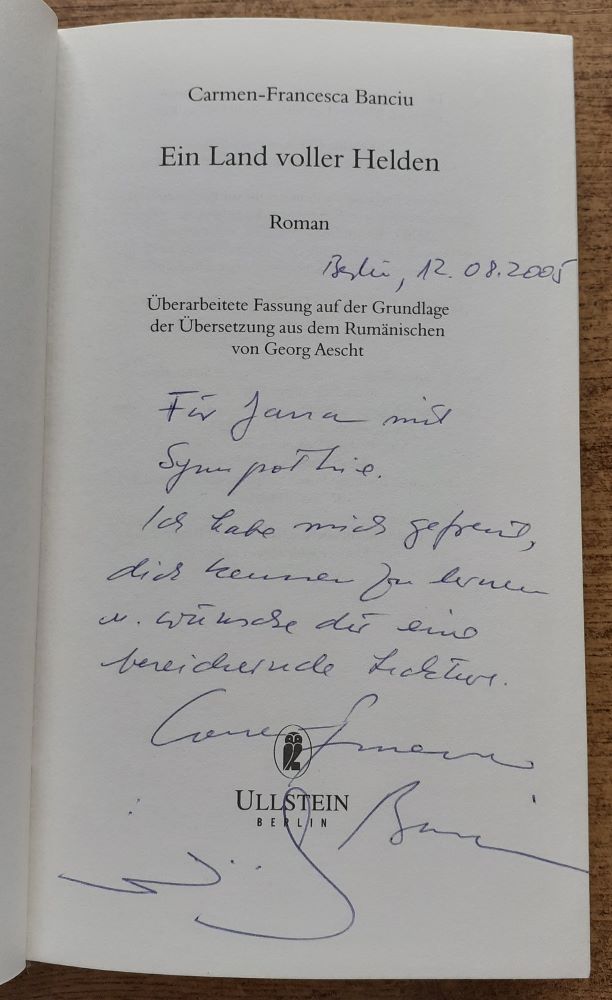 Carmen-Francesca Banciu
Ein Land voller Helden
Roman
Berlin, 12.08.2005
Überarbeitete Fassung auf der Grundlage
der Übersetzung aus dem Rumänischen
von Georg Aescht
Für Jana mit
Sympathie.
Ich habe mich gefreut,
dich kennen zu lernen
u. wünsche dir eine
bereichernde Lektüre.
Carmen-Francesca
ULLSTEIN
BERLIN
Banciu